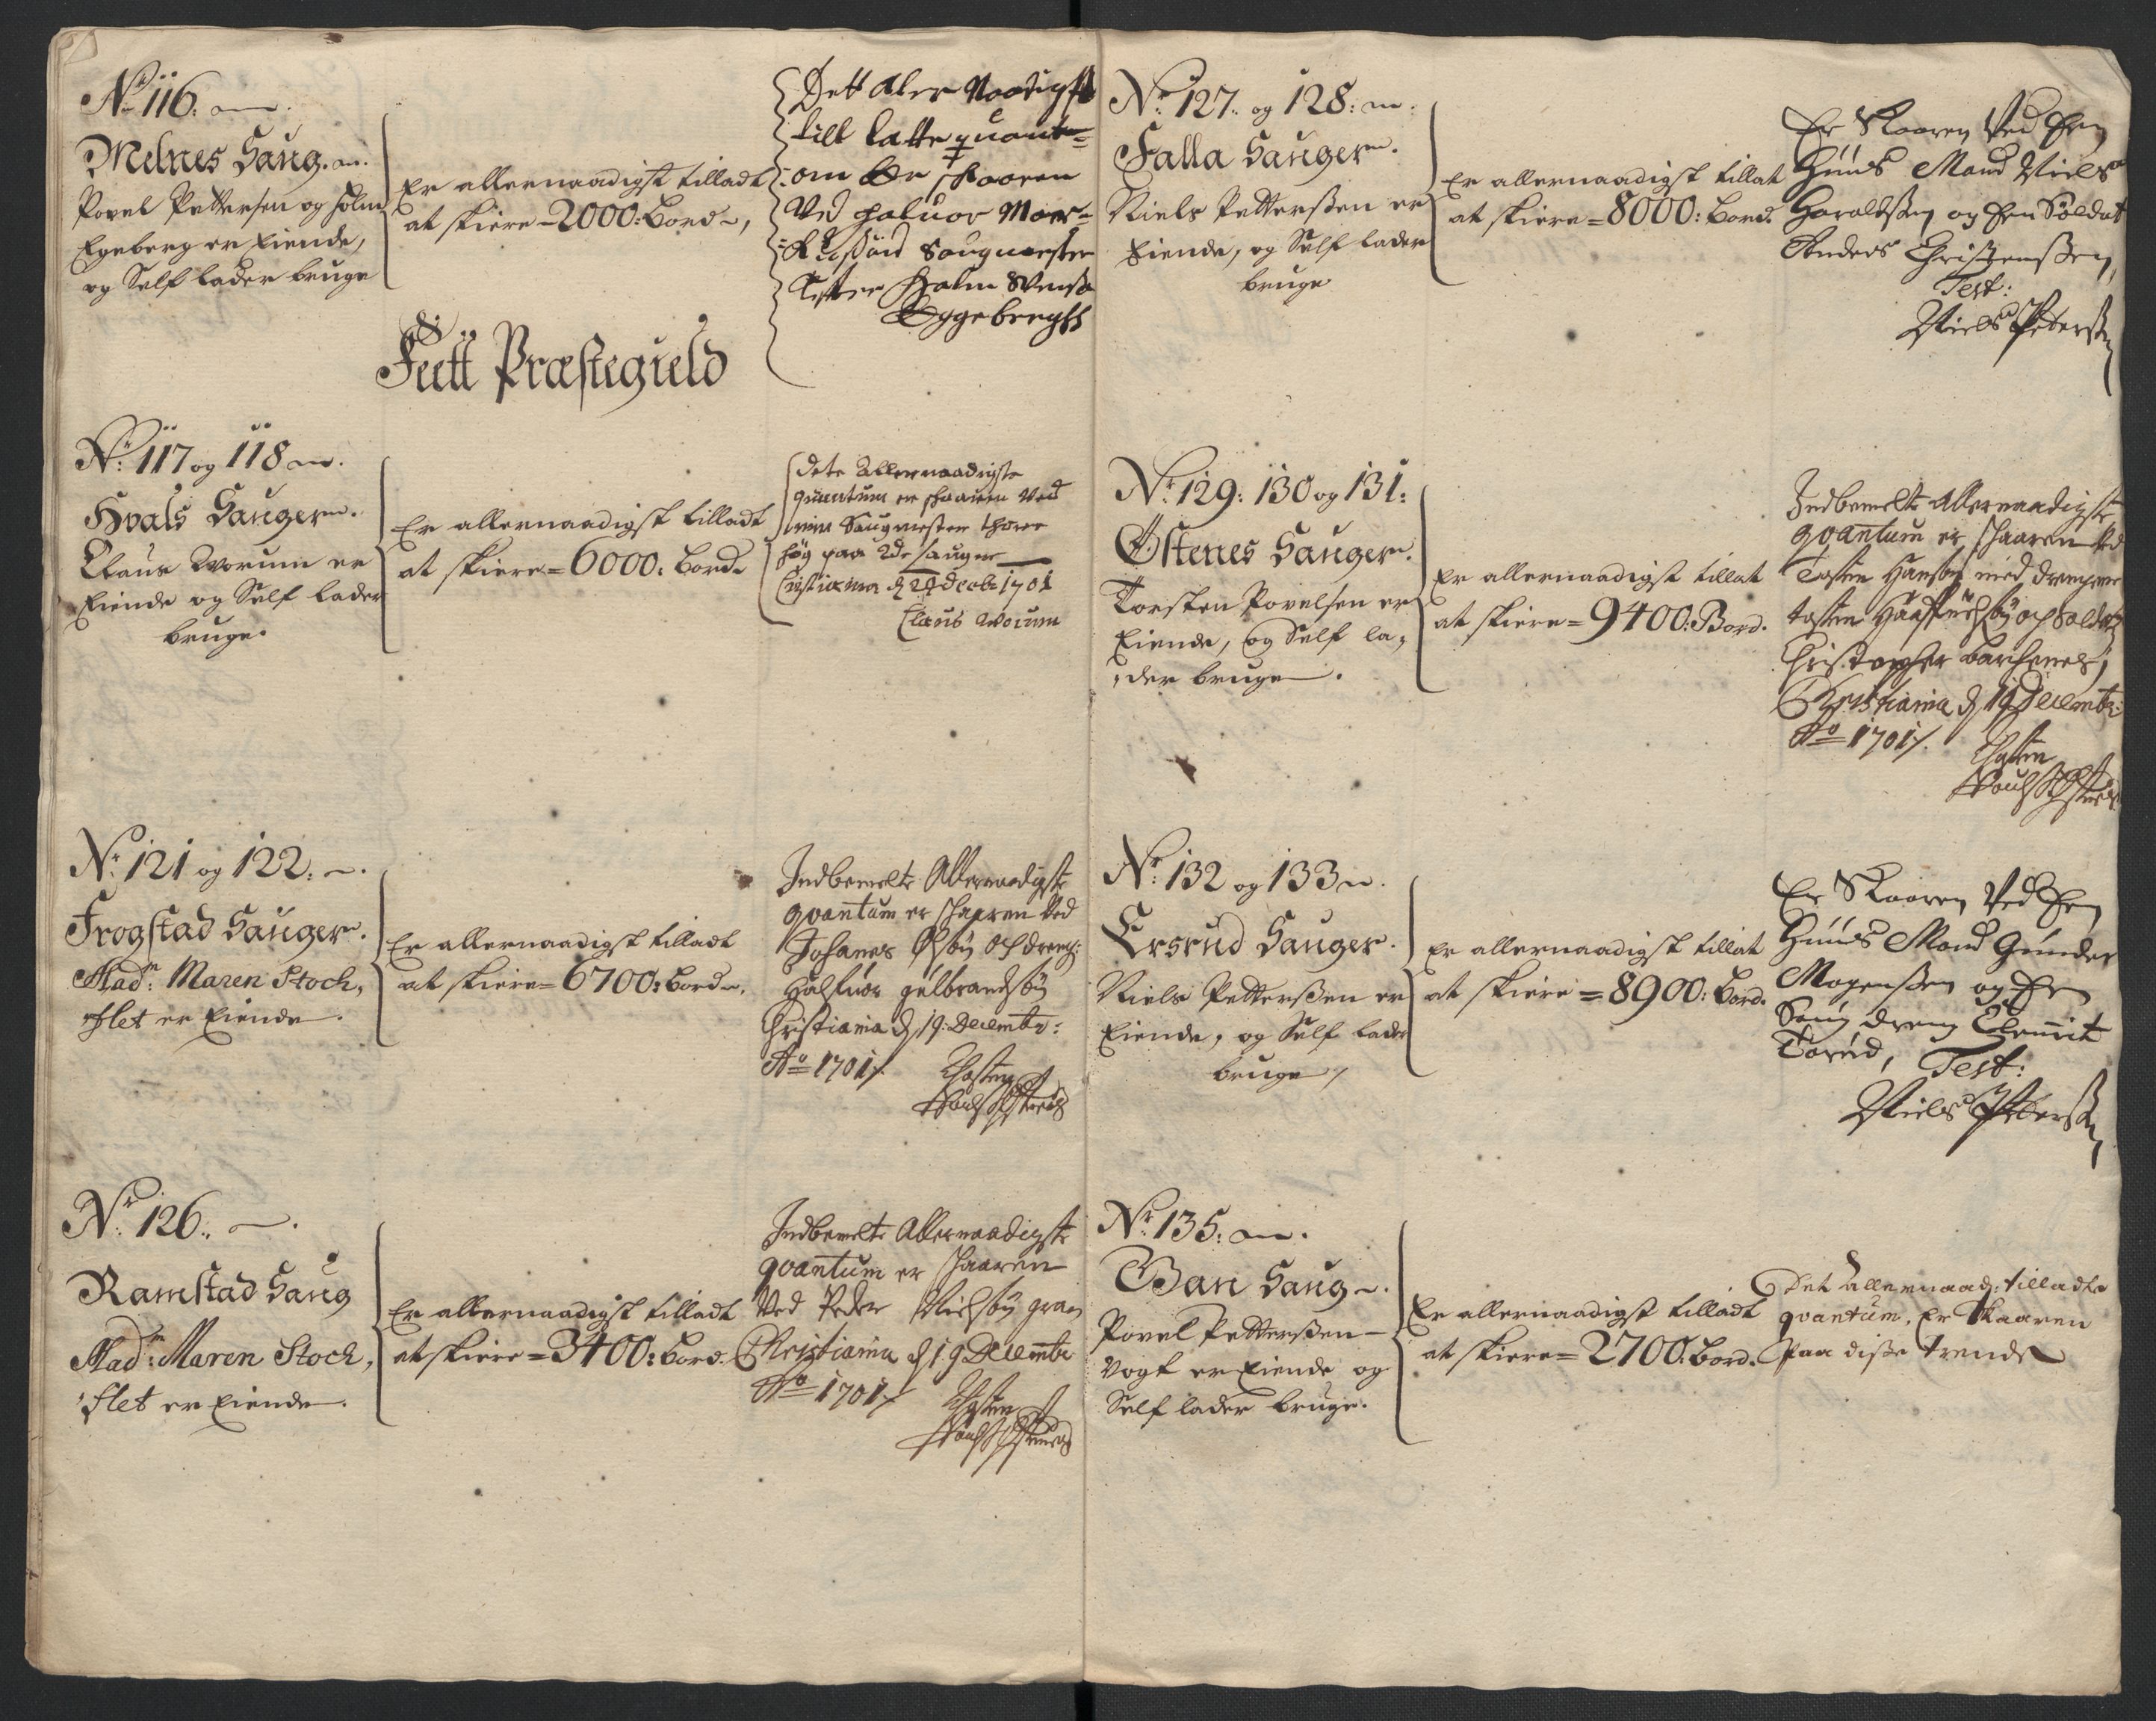 No 116.
Melnes Saug.
Povel Pettersen og Holm
Egeberg er Eiende,
og Self lader bruge
Er allernaadigst tilladt
at skiere = 2000: Bord,
Dett aler Naadigst
till latte quant=
om Er skaaren
Ved Haluor
Saugmester
Holm Svenss
Eggebergh
Fett Præstegield
No 117 og 118
Hvals Sauger.
Claus Worum er
Eiende og Self lader
bruge.
Er allernaadigst tilladt
at skiere = 6000: Bord
dete Allernaadigste
quantum er skaaren Ved
min Saugmester thore
høg paa 2de sauger
Cristiania d 29 decb 1701
Claus Worum
Nr 121 og 122.
Frogstad Sauger.
Mad: Maren Stoch,
flet er Eiende.
Er allernaadigst tilladt
at skiere = 6700: Bord.
Indbemelte Allernaadigste
qvantum er skaaren Ved
Johanes Olsøn och dreng:
Halfuor gulbrandsøn
Christiania d 19: Decembr:
Ao 1701/.
Thosten
Nr 126.
Ramstad Saug
Mad: Maren Stoch,
flet er Eiende.
Er allernaadigst tilladt
at skiere = 3400: Bord.
Indbemelte Allernaadigste
qvantum er skaaren
Ved Peder Nielsøn gran
Christiania d 19 Decembr
Ao 1701/
Thosten
Nr 127. og 128:
Falla Sauger
Niels Petterssen er
Eiende, og Self lader
bruge
Er allernaadigst tillat
at skiere = 8000: Bord.
Er Skaaren Ved Hen
Huus Mand Niels
Haraldsen og Hen Soldat
Anders Christenssen,
Test:
Niels Peterss
Nr 129: 130 og 131:
Østenes Sauger.
Torsten Povelsen er
Eiende, og Self la,
der bruge.
Er allernaadigst tillat
at skiere = 9400: Bord.
Indbemelte Allernaadigste
qvantum er skaaren Ved
Tosten Hansøn med drengene
tosten och Soldat
Christopher
Christiania d 19 Decembr:
Ao 1701/.
Thosten
Nr 132 og 133
Ersrud Sauger.
Niels Petterssen er
Eiende, og Self lader
bruge
Er allernaadigst tillat
at skiere = 8900: Bord.
Er Skaaren Ved Hen
Huus Mand Gunder
Mogenssen og Hen
Saug dreng
Test:
Niels Peterss
Nr 135:
Gan Saug.
Povel Petterssen
Vogt er Eiende og
Self lader bruge.
Er allernaadigst tilladt
at skiere = 2700: Bord.
Det allernaad: tilladte
qvantum, Er Skaaren
Paa disse trende